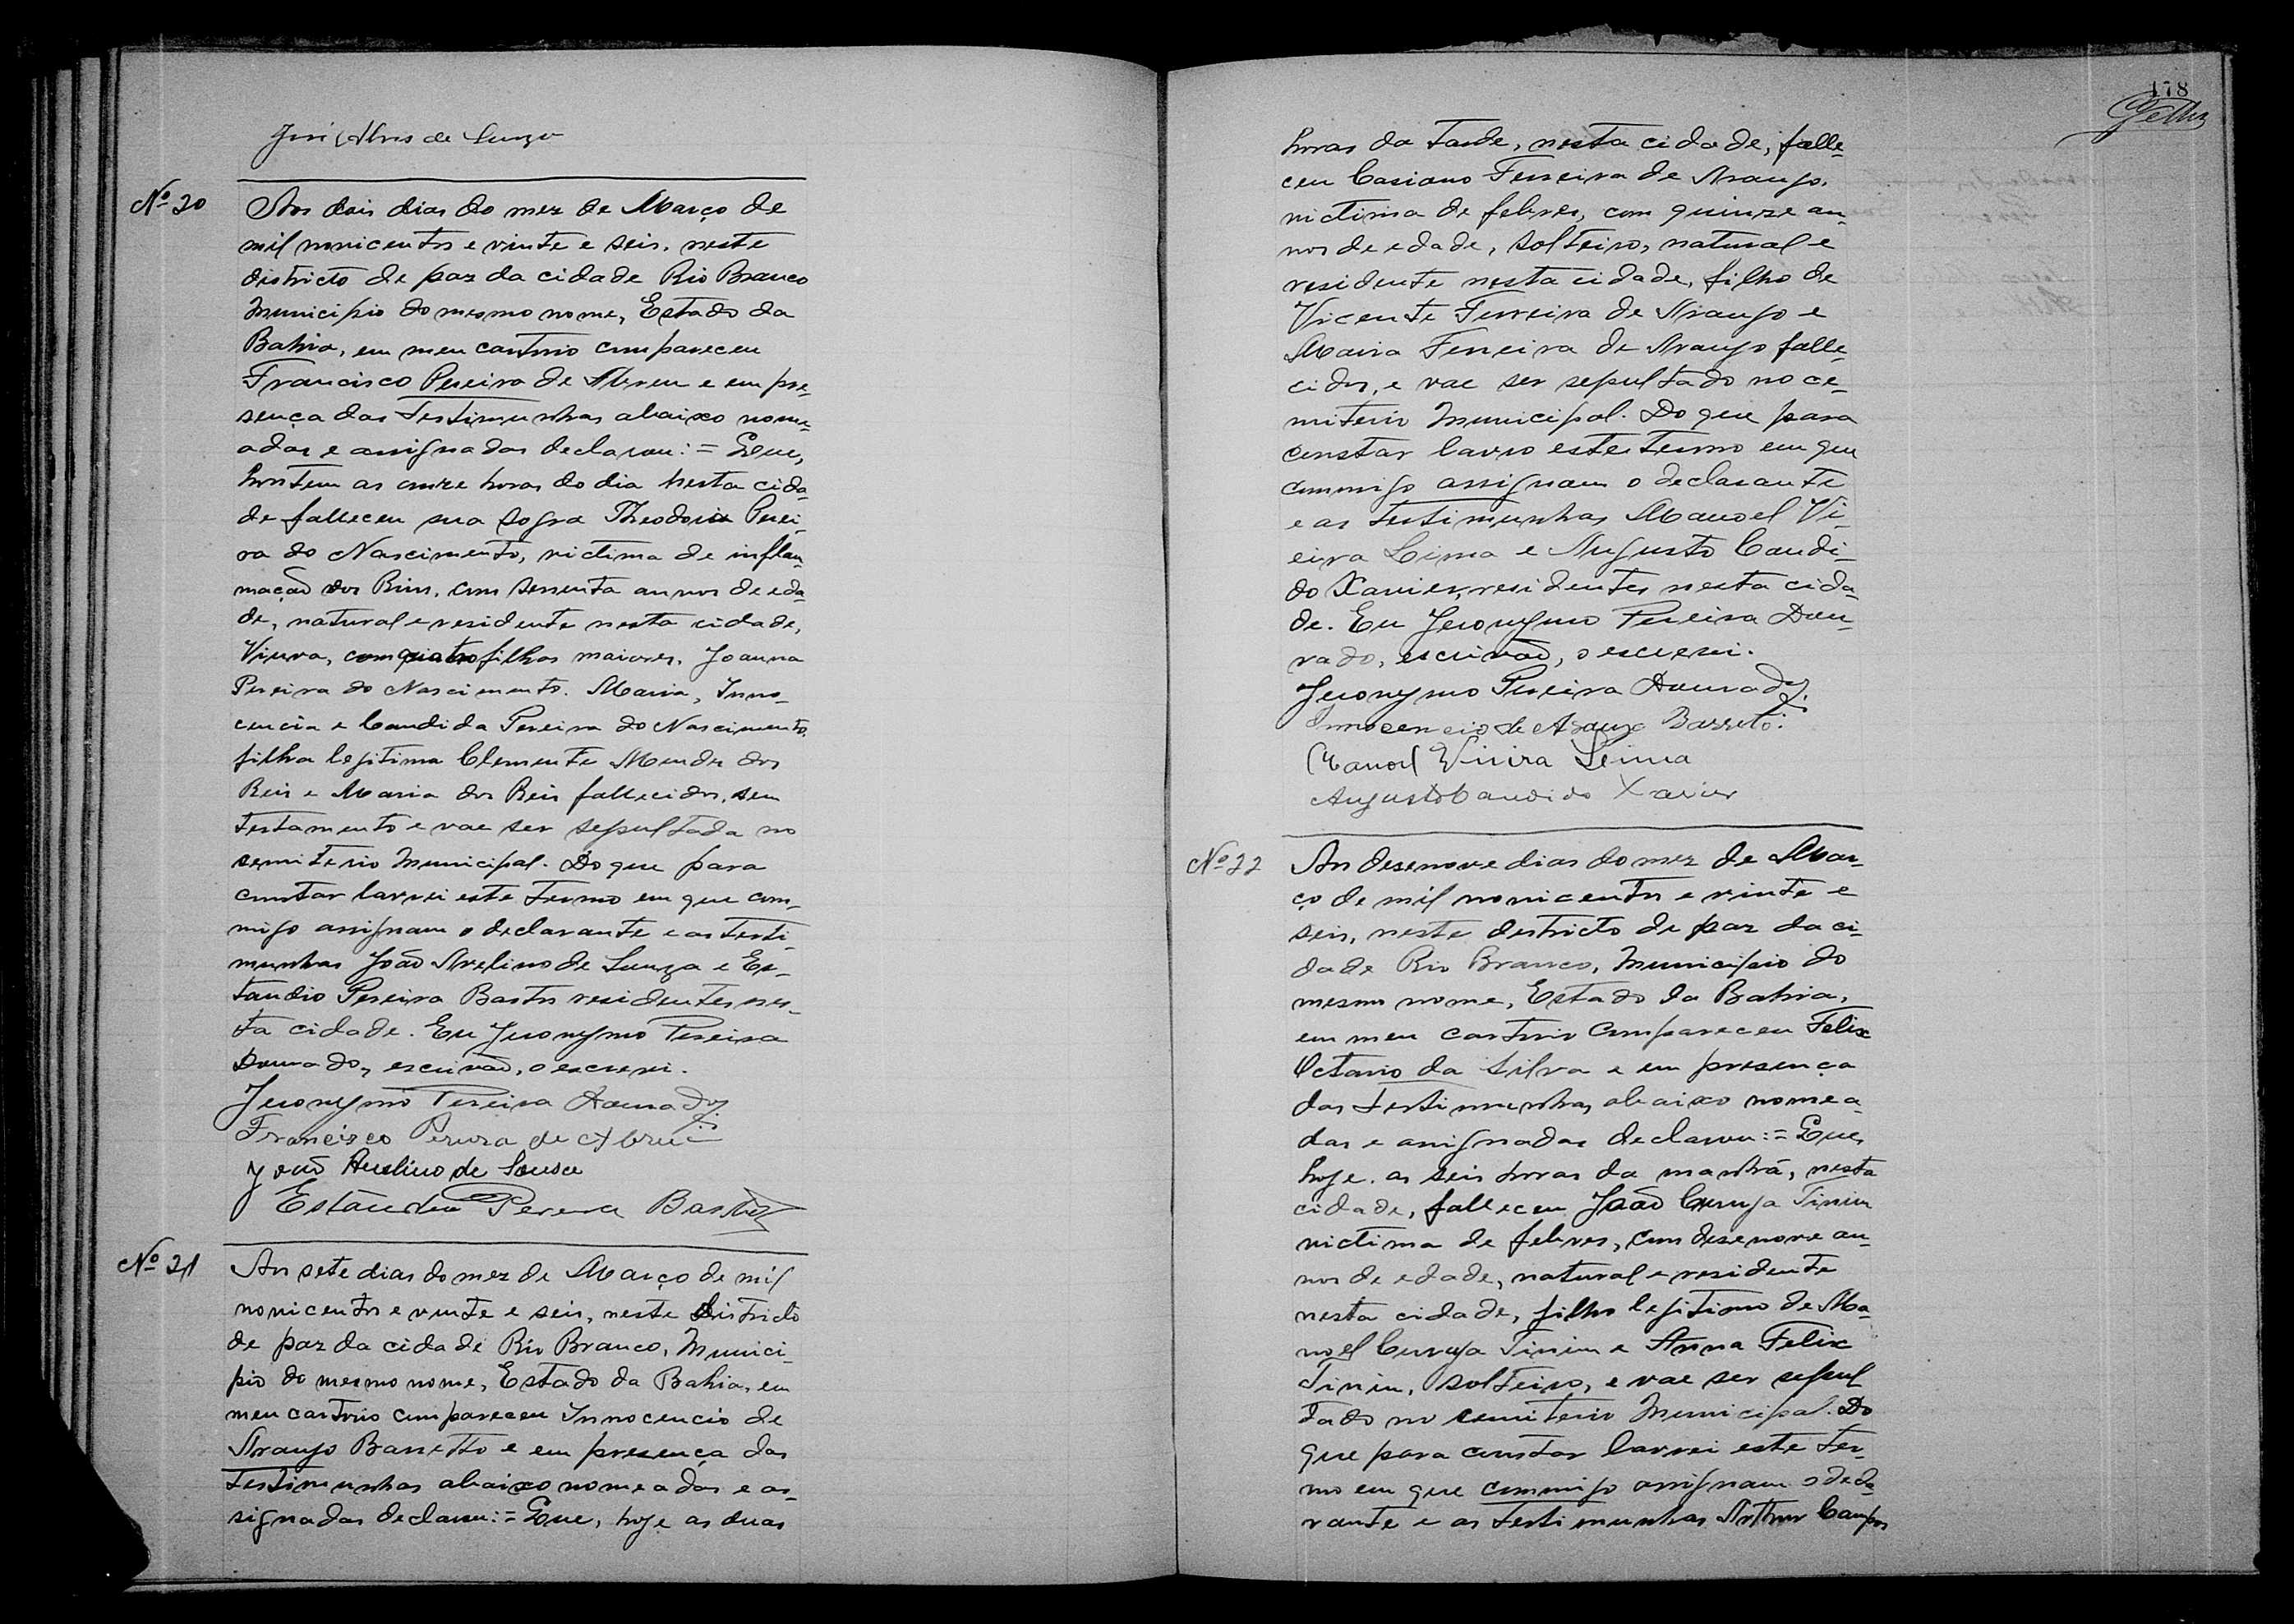 José Alves de Souza
Nº 20
Aos dois dias do mez de Março de
mil novicentos e vinte e seis, neste
districto de paz da cidade Rio Branco
Municipio do mesmo nome, Estado da
Bahia, em meu cartorio compareceu
Francisco Pereira de Abreu e em pre-
sença das testimunhas abaixo nome-
adas e assignadas declarou:= Que,
hontem as onze horas do dia nesta cida-
de falleceu sua sogra Theodoria Perei-
ra do Nascimento, victima de inflam-
mação dos Rins, com sessenta annos de eda-
de, natural e residente nesta cidade,
Viuva, com quatro filhos maiores, Joanna
Pereira do Nascimento. Maria, Inno-
cencia e Candida Pereira do Nascimento,
filha legitima Clemente Mendes dos
Reis e Maria dos Reis fallecidos, sem
testamento e vae ser sepultada no
semiterio Municipal. Do que para
constar lavrei este termo em que com-
migo assignam o declarante e as testi-
munhas João Avelino de Souza e Es-
tandio Pereira Bastos residentes nes-
ta cidade. Eu Jeronymo Pereira
Dourado, escrivão, o escrevi.
Jeronymo Pereira Dourado,
Francisco Pereira de Abreu
João Avelino de Sousa
Estandio Pereira Bastos
Nº 21
Aos sete dias do mez de Março de mil
novicentos e vinte e seis, neste districto
de paz da cidade Rio Branco, Munici-
pio do mesmo nome, Estado da Bahia, em
meu cartorio compareceu Innocencio de
Araujo Barretto e em presença das
testimunhas abaixo nomeadas e as-
signadas declarou:= Que, hoje as duas
178
horas da tarde, nesta cidade, falle-
ceu Casiano Ferreira de Araujo,
victima de febres, com quinze an-
nos de edade, solteiro, natural e
residente nesta cidade, filho de
Vicente Ferreira de Araujo e
Maria Ferreira de Araujo falle-
cidos, e vae ser sepultado no ce-
miterio Municipal. Do que para
constar lavro este termo em que
commigo assignam o declarante
e as testimunhas Manoel Vi-
eira Lima e Augusto Candi-
do Xavier, residentes nesta cida-
de. Eu Jeronymo Pereira Dou-
rado, escrivão, o escrevi.
Jeronymo Pereira Dourado,
Innosencio de Araujo Barreto.
Manoel Vieira Leima
Augusto Candido Xavier
Nº 22
Aos desenove dias do mez de Mar-
ço de mil novicentos e vinte e
seis, neste destricto de paz da ci-
dade Rio Branco, Municipio do
mesmo nome, Estado da Bahia,
em meu cartorio compareceu Felix
Octavio da Silva e em presença
das testimunhas abaixo nomea-
das e assignadas declarou:= Que,
hoje, as seis horas da manhã, nesta
cidade, falleceu João
victima de febres, com desenove an-
nos de edade, natural e residente
nesta cidade, filho legitimo de Ma-
noel e Anna Felix
solteiro, e vae ser sepul
tado no cemiterio Municipal. Do
que para constar lavrei este ter-
mo em que commigo assignam o decla-
rante e as testimunhas Arthur Campos